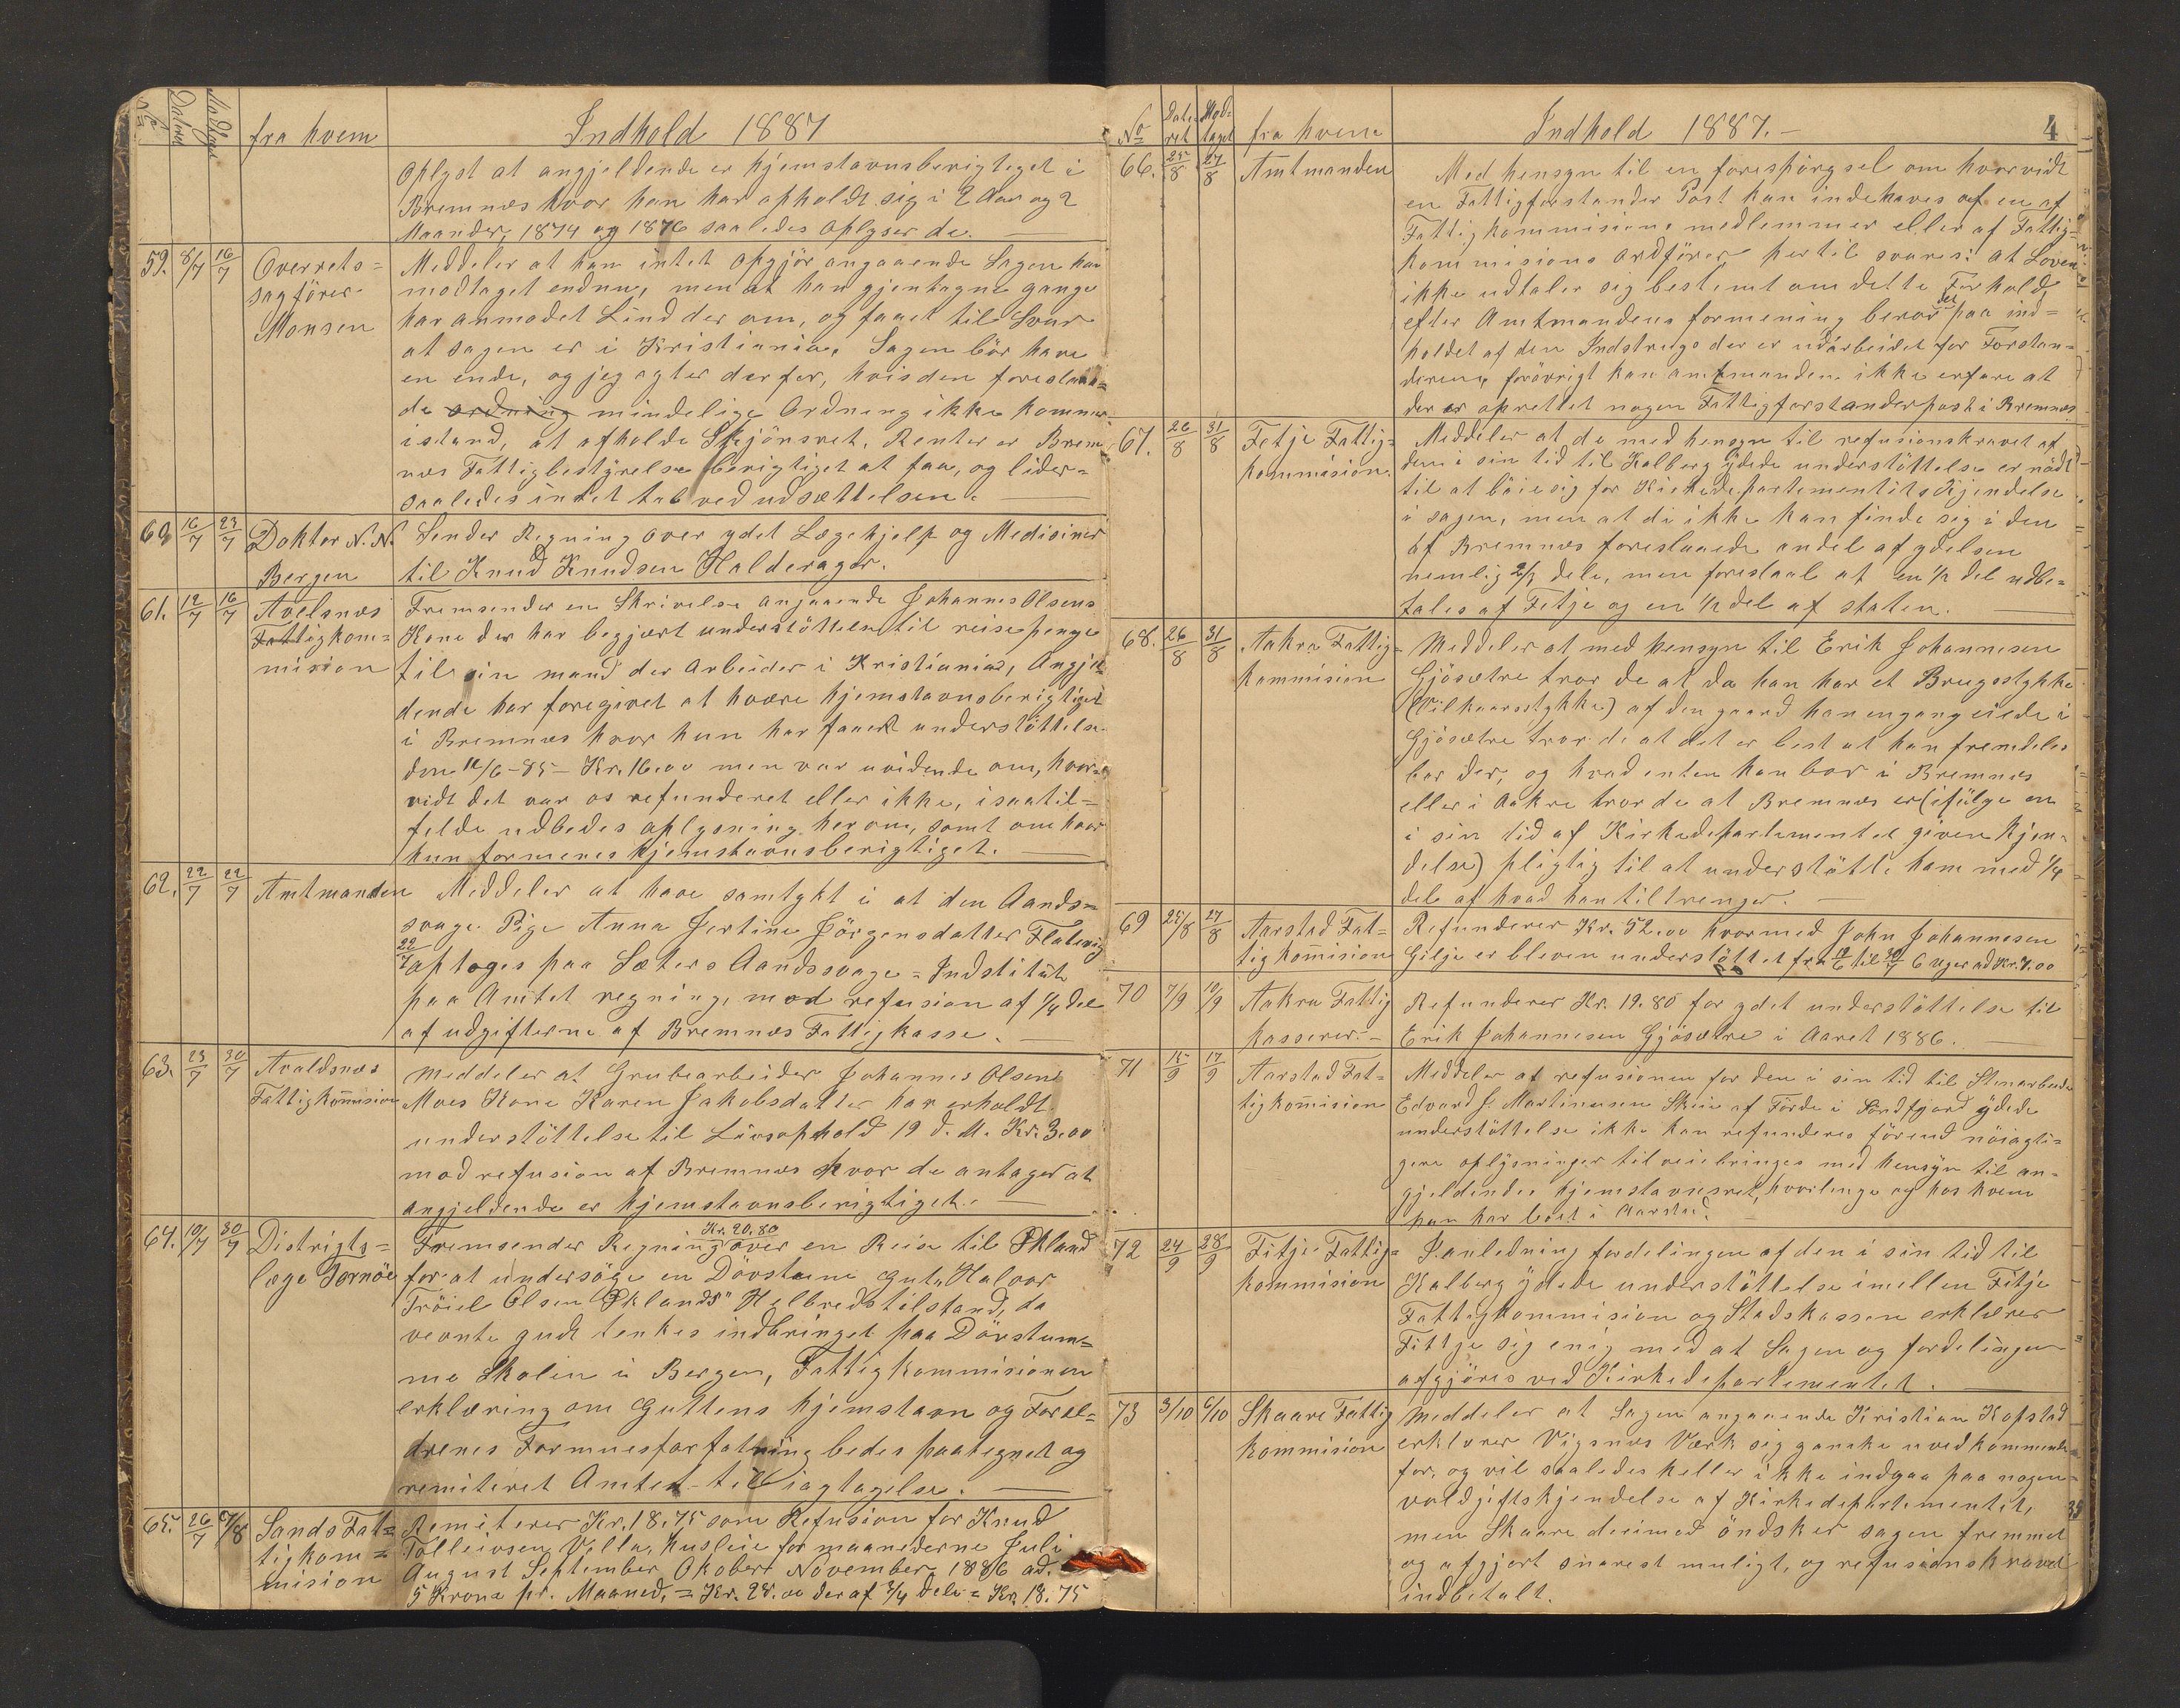 No Dateret Modtaget fra hvem Indhold 1887
Oplyst at angjeldende er hjemstavnsberigtiget i
Bremnæs hvor han har opholdt sig i 2 Aar og 2
Maander, 1874 og 1876 saaledes Oplyser de.
59. 8/7 16/7 Overrets=
sagförer
Monsen
Meddeler at han intet opgjör angaaende Sagen har
modtaget endnu, men at han gjentagne gange
har anmodet Lind der om, og faaet til Svar
at sagen er i Kristiania, Sagen bör have
en ende, og jeg agter derfor, hvis den foreslaaa=
de ordning mindelige Ordning ikke kommer
istand, at afholde Skjönsret. Renter er Brem
næs Fattigbestyrelse berigtiget at faa, og lider=
saaledes intet tab ved udsættelsen.
60 16/7 23/7 Doktor N. N.
Bergen
Sender Regning over ydet Lægehjelp og Mediciner
til Knud Knudsen Halderager.
61. 12/7 16/7 Avelsnæs
Fattigkom=
mission
Fremsender en Skrivelse angaaende Johannes Olsens
Kone der har begjært understöttelse til reisepenge
til sin mand der Arbeider i Kristiania, Angjel
dende har foregivet at hvære hjemstavnsberigtiget
i Bremnæs hvor hun har faaet understöttelse
den 12/6-85- Kr. 16.00 men var uvidende om, hvor=
vidt det var os refunderet eller ikke, isaatil=
felde udbedes oplysning herom, samt om hvor
hun formenes hjemstavnsberigtiget.
62. 22/7 22/7 Amtmanden
Meddeler at have samtykt i at den Aands=
svage Pige Anna Jertine Jörgensdatter Flatevig
22/7 optoges paa Sæters Aandssvage=Indstitüt
paa Amtet regning, mod refusion af 1/4 del
af udgifterne af Bremnæs Fattigkasse.
63. 23/7 30/7 Avaldsnæs
Fattigkommision
Meddeler at Grubearbeider Johannes Olsens
Moes Kone Karen Jakobsdatter har erholdt
understöttelse til Livsophold 19 d. M. Kr. 3.00
mod refusion af Bremnæs hvor de antager at
angjeldende er hjemstavnsberigtiget.
64. 10/7 30/7 Distrigts=
læge Tornöe
Kr. 20.80
Fremsender Regning over en Reise til Økland
for at undersöge en Dövstum Gut, Halvor
Tröiel Olsen Øklands" Helbredstilstand, da
vevnte gudt tenkes indbringet paa Dövstum=
me Skolen i Bergen, Fattigkommisionen
erklæring om Guttens hjemstavn og Foræl=
drenes Formuesforfatning bedes paategnet og
remiteret Amtet til iagtagelse.
65. 26/7 6/8 Sands Fat=
tigkom=
mision
Remiterer Kr. 18.75 som Refusion for Knud
Tolleivsen Valla, husleie for maanederne Juli
August September Okober November 1886 ad.
5 Krone pr. Maaned, = Kr. 25.00 deraf 3/4 dele = Kr. 18.75
No Dateret Modtaget fra hvem Indhold 1887.- 4
66. 25/8 27/8 Amtmanden
Med hensyn til en forespörgsel om hvorvidt
en Fattigforstander Post kan indehaves af en af
Fattigkommisions medlemmer eller af Fattig-
kommisions Ordförer hertil svares: at Loven
ikke udtaler sig bestemt om dette Forhold,
efter Amtmandens formening beror det paa ind=
holdet af den Indstrugs der er udarbeidet for Forstan=
deren, forövrigt kan amtmanden ikke erfare at
der er oprettet nogen Fattigforstanderpost i Bremnæs
67. 26/8 31/8 Fetje Fattig=
kommision.
Meddeler at de med hensyn til refusionskravet af
den i sin tid til Kalberg ÿdede understöttelse er nödt
til at böie sig for Kirkedepartementets Kjendelse
i sagen, men at di ikke kan finde sig i den
af Bremnæs foreslaaede andel af ydelsen
nemlig 2/3 dele, men foreslaal at en 1/2 del udbe=
tales af Fetje og en 1/2 del af staten.
68. 26/8 31/8 Aakra Fattig=
kommision
Meddeler at med hensyn til Erik Johannesen
Gjösætre tror de at da han har et Brugsstykke
(Vilkaarsstykke) af den gaard han engang eiede i
Gjösætre tror de at det er best at han fremdeles
bor der, og hvad enten han bor i Bremnæs
eller i Aakre tror de at Bremnæs er (ifülge en
i sin tid af Kirkedepartementet given Kjen=
delse) pligtig til at understötte ham med 1/4
del af hvad han tiltrenger.
69 25/8 27/8 Aarstad Fat=
tigkommision
Refunderer Kr. 52.00 hvormed John Johannesen
Gilje er bleven understöttet fra 19/6 til 30/7 6 uger ad Kr. 7.00
70 7/9 10/9 Aakra Fattig
kasserer.-
Refunderer Kr. 19.80 for ydet understöttelse til
Erik Johannesen Gjösætre i Aaret 1886.
71 15/9 17/9 Aarstad Fat=
tigkommision
Meddeler at refusionen for den i sin tid til Stenarbeider
Edvard J. Martinusen Skeie af Förde i Söndfjord ÿdede
understöttelse ikke kan refunderes förend nöiagti=
gere oplysninger tilveiebringes med hensyn til an=
gjeldendes hjemstavnsret, hvorlenge og hos hvem
han har boet i Aarstad.
72 24/9 28/9 Fitje Fattig=
kommision
I anledning fordelingen af den i sin tid til
Kalberg ÿdede understöttelse imellen Fitje
Fattigkommision og Stadskassen erklærer
Fittje sig enig med at Sagen og fordelingen
afgjöres ved Kirkedepartementet.
73 3/10 6/10 Skaare Fattig
kommision
Meddeler at Sagen angaaende Kristian Kopstad
erklærer Vigsnæs Værk sig ganske uvedkommende
for, og vil saaledes heller ikke indgaa paa nogen
voldgiftskjendelse af Kirkedepartementet,
men Skaare derimod öndsker sagen fremmet
og afgjort snarest muligt, og refusionskravet
indbetalt.